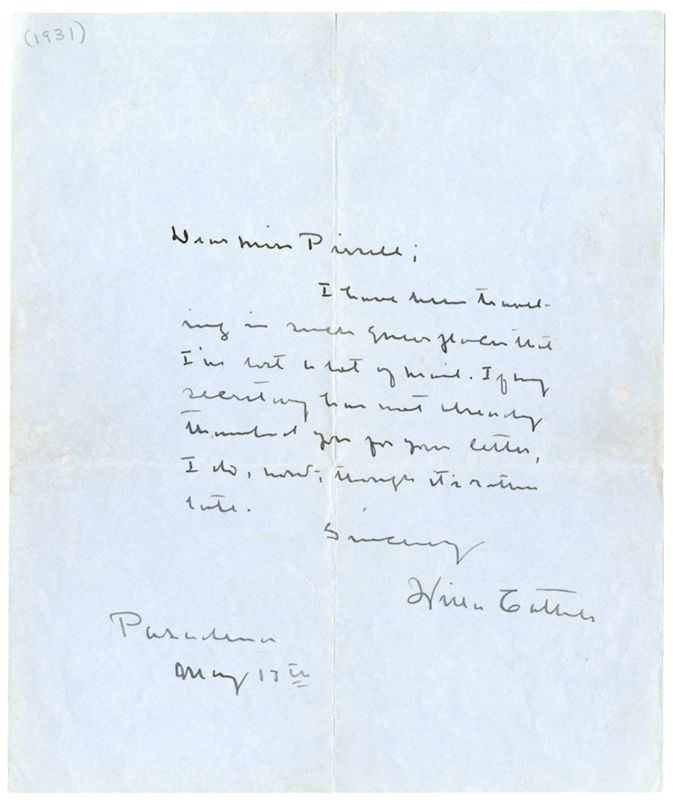 (1931)
Dear Miss
I have been travel-
ing in such queer places that
I've lost a lot of mail. If my
secretary has not already
thanked you for your letter,
I do, now; though it is rather
late.
Sincerely
Willa Cather
Pasadena
May 13th